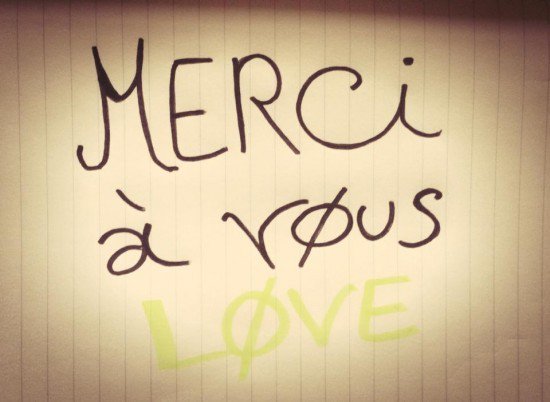 MERCi
à vøus
LØVE